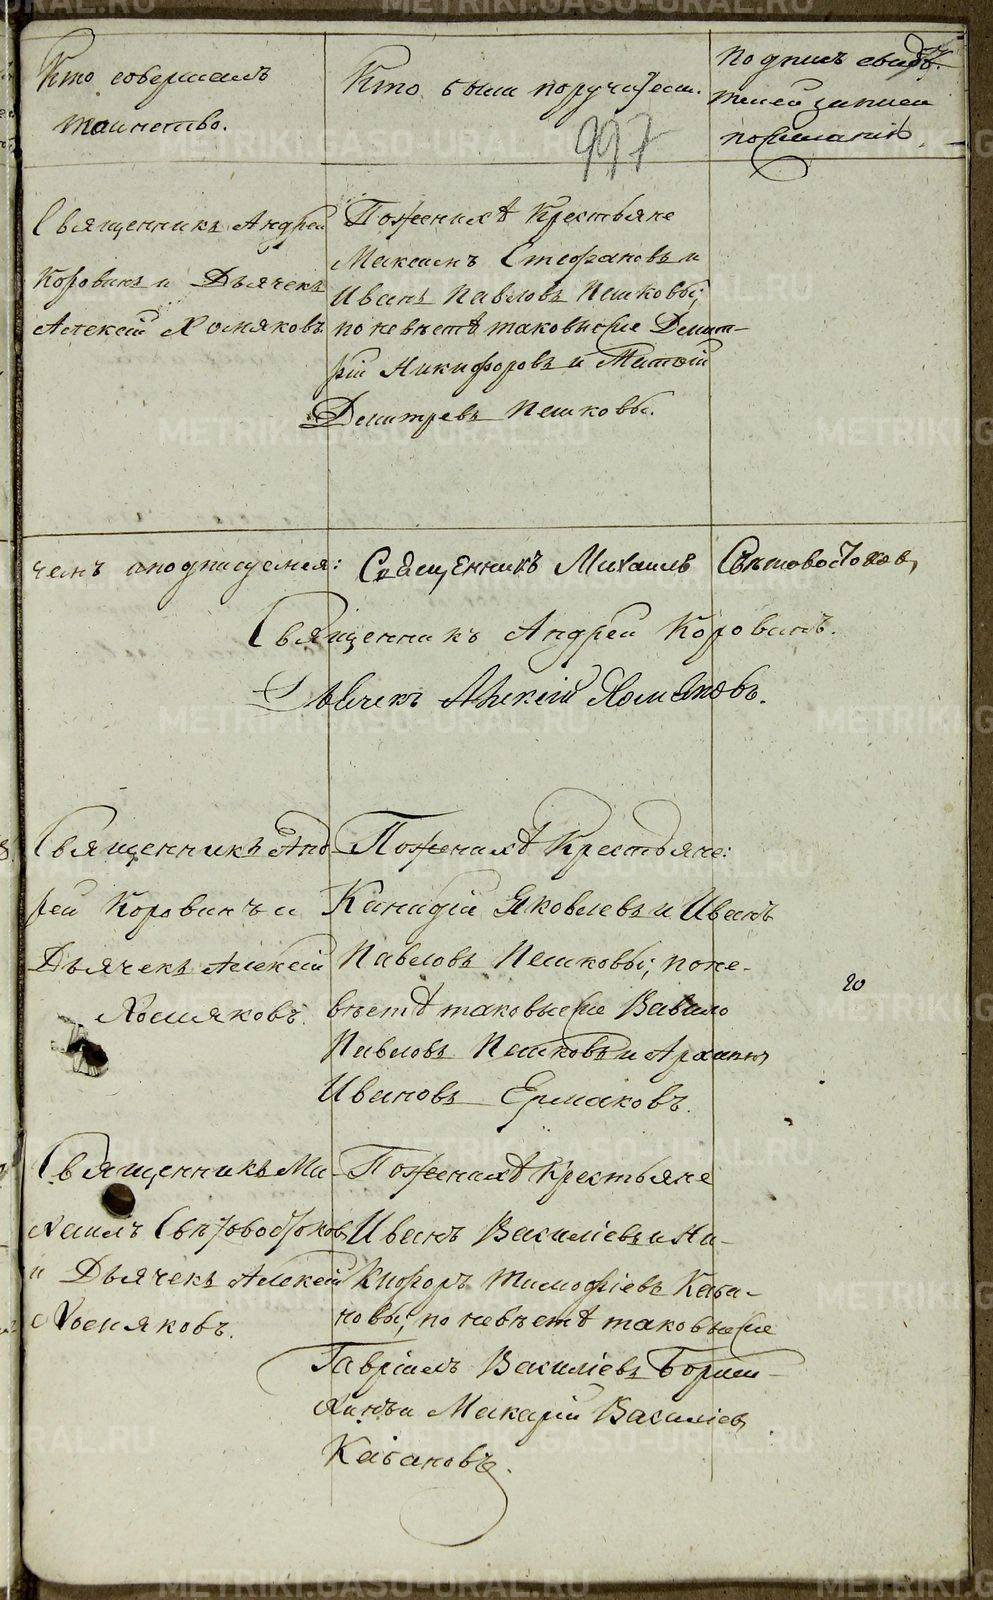 Кто совершалъ
таинство.
Кто были поручители.
Подпись свидѣ-
телей записи
по желанію.
997
Священникъ Андрей
Коровинъ и Дьячекъ
Алексѣй Хомяковъ
По женихѣ Крестьяне
Максимъ Стефановъ и
Иванъ Павловъ Пешковы;
по невѣстѣ таковые же Димит-
рій Никифоровъ и
Димитревъ Пешковы.
чемъ и подписуемся: Священникъ Михаилъ Свѣтовостоковъ,
Священникъ Андрей Коровинъ.
Дьячекъ Алексій Хомяковъ.
Священникъ Анд-
рей Коровинъ и
Дьячекъ Алексѣй
Хомяковъ.
По женихѣ Крестьяне:
Яковлевъ и Иванъ
Павловъ Пешковы; по не-
вѣстѣ таковые же Вавило
Павловъ Пешковъ и
Ивановъ Ермаковъ.
20
Священникъ Ми-
хаилъ Свѣтовостоковъ
и Дьячекъ Алексѣй
Хомяковъ.
По женихѣ Крестьяне
Иванъ Василіевъ и Ни-
кифоръ Тимофіевъ Каба-
новы; по невѣстѣ таковые же
Гавріилъ Василіевъ
и Макарій Василіевъ
Кабановъ.
METRIKI.GASO-URAL.RU